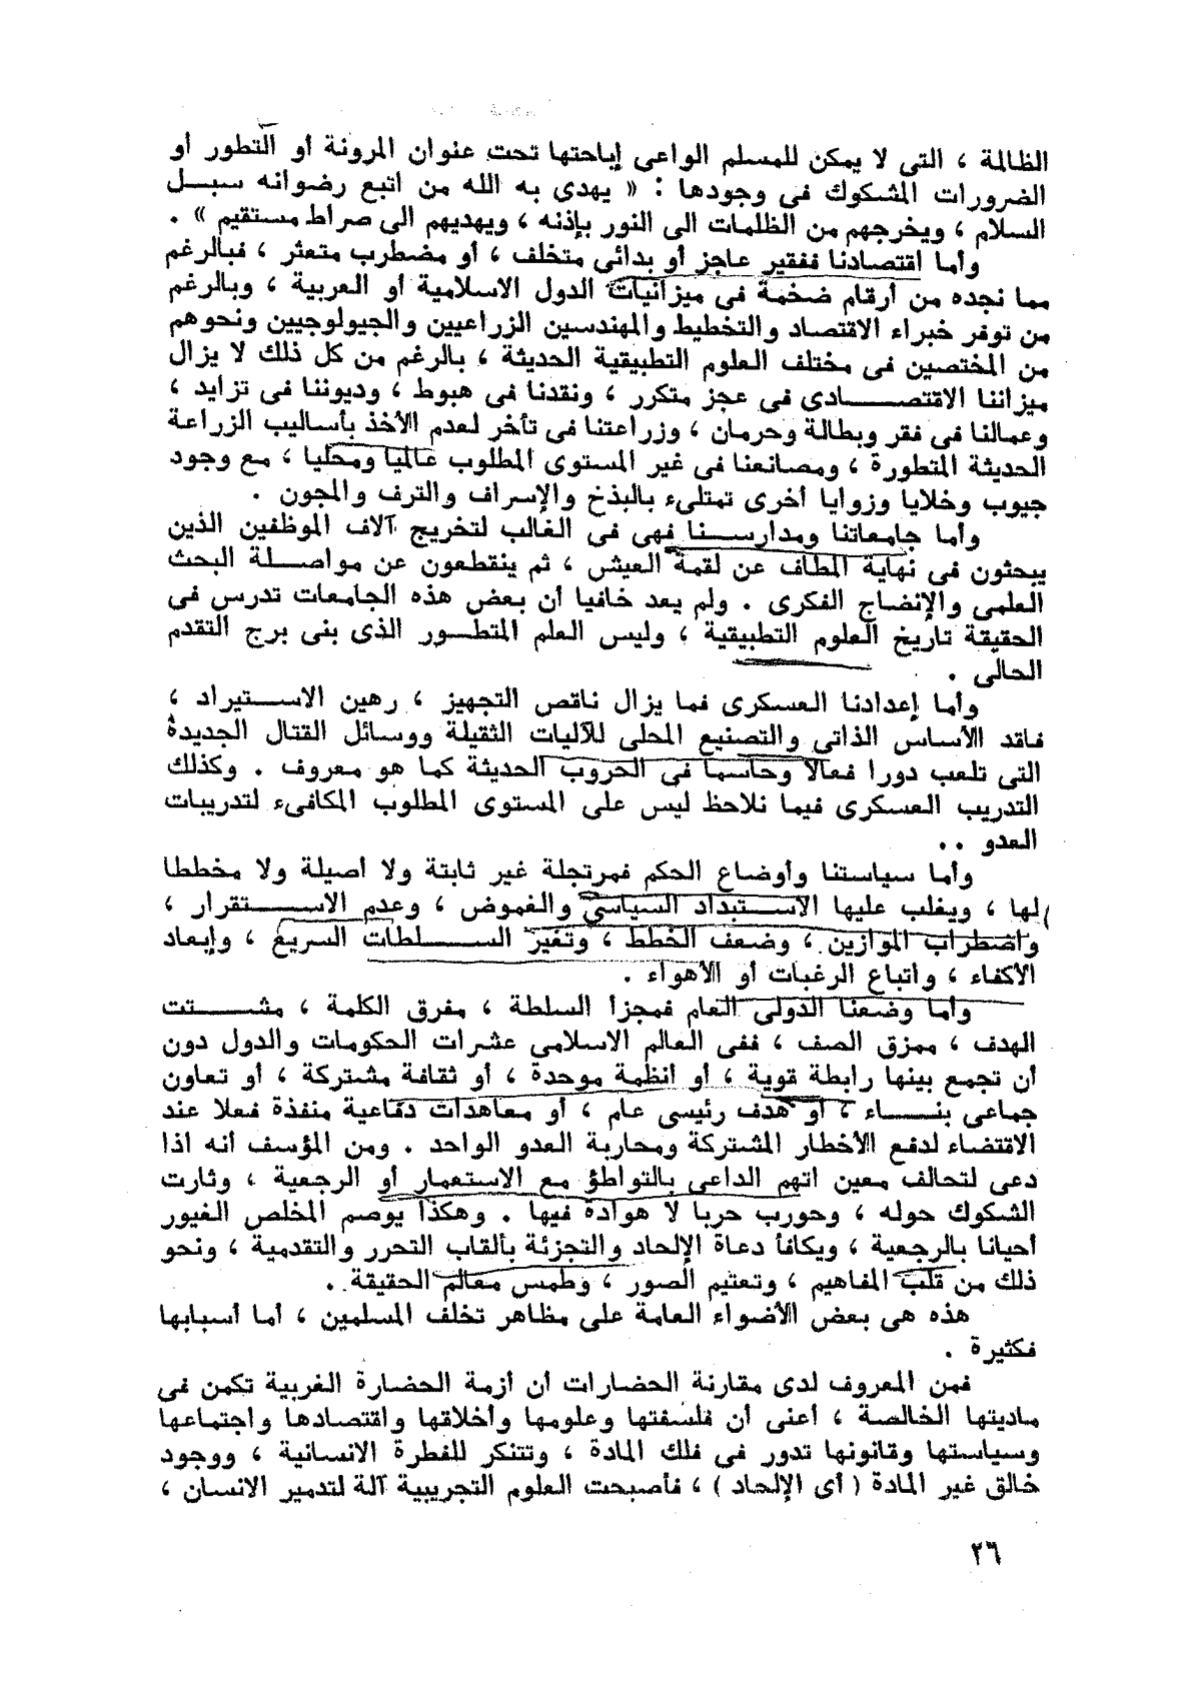 الظالمة ، التى لا يمكن للمسلم الواعى إباحتها تحت عنوان المرونة أو التطور أو
الضرورات المشكوك فى وجودها : « يهدى به الله من اتبع رضوانه سبل
السلام ، ويخرجهم من الظلمات الى النور بإذنه ، ويهديهم الى صراط مستقيم » .
وأما اقتصادنا ففقير عاجز أو بدائى متخلف ، أو مضطرب متعثر ، فبالرغم
مما نجده من أرقام ضخمة فى ميزانيات الدول الاسلامية أو العربية ، وبالرغم
من توفر خبراء الاقتصاد والتخطيط والمهندسين الزراعيين والجيولوجيين ونحوهم
من المختصين فى مختلف العلوم التطبيقية الحديثة ، بالرغم من كل ذلك لا يزال
ميزاننا الاقتصادى فى عجز متكرر ، ونقدنا فى هبوط ، وديوننا فى تزايد ،
وعمالنا فى فقر وبطالة وحرمان ، وزراعتنا فى تأخر لعدم الأخذ بأساليب الزراعة
الحديثة المتطورة ، ومصانعنا فى غير المستوى المطلوب عالميا ومحليا ، مع وجود
جيوب وخلايا وزوايا أخرى تمتلىء بالبذخ والإسراف والترف والمجون .
وأما جامعاتنا ومدارسنا فهى فى الغالب لتخريج آلاف الموظفين الذين
يبحثون فى نهاية المطاف عن لقمة العيش ، ثم ينقطعون عن مواصلة البحث
العلمى والإنضاج الفكرى . ولم يعد خافيا أن بعض هذه الجامعات تدرس فى
الحقيقة تاريخ العلوم التطبيقية ، وليس العلم المتطور الذى بنى برج التقدم
الحالى .
وأما إعدادنا العسكرى فما يزال ناقص التجهيز ، رهين الاستيراد ،
فاقد الأساس الذاتى والتصنيع المحلى للآليات الثقيلة ووسائل القتال الجديدة
التى تلعب دورا فعالا وحاسما فى الحروب الحديثة كما هو معروف . وكذلك
التدريب العسكرى فيما نلاحظ ليس على المستوى المطلوب المكافىء لتدريبات
العدو ..
وأما سياستنا وأوضاع الحكم فمرتجلة غير ثابتة ولا أصيلة ولا مخططا
لها ، ويغلب عليها الاستبداد السياسى والغموض ، وعدم الاستقرار ،
واضطراب الموازين ، وضعف الخطط ، وتغير السلطات السريع ، وإبعاد
الأكفاء ، واتباع الرغبات أو الأهواء .
وأما وضعنا الدولى العام فمجزأ السلطة ، مفرق الكلمة ، مشتت
الهدف ، ممزق الصف ، ففى العالم الاسلامى عشرات الحكومات والدول دون
أن تجمع بينها رابطة قوية ، أو أنظمة موحدة ، أو ثقافة مشتركة ، أو تعاون
جماعى بناء ، أو هدف رئيسى عام ، أو معاهدات دفاعية منفذة فعلا عند
الاقتضاء لدفع الأخطار المشتركة ومحاربة العدو الواحد . ومن المؤسف أنه اذا
دعى لتحالف معين اتهم الداعى بالتواطؤ مع الاستعمار أو الرجعية ، وثارت
الشكوك حوله ، وحورب حربا لا هوادة فيها . وهكذا يوصم المخلص الغيور
أحيانا بالرجعية ، ويكافأ دعاة الإلحاد والتجزئة بألقاب التحرر والتقدمية ، ونحو
ذلك من قلب المفاهيم ، وتعتيم الصور ، وطمس معالم الحقيقة .
هذه هى بعض الأضواء العامة على مظاهر تخلف المسلمين ، أما أسبابها
فكثيرة .
فمن المعروف لدى مقارنة الحضارات أن أزمة الحضارة الغربية تكمن فى
ماديتها الخالصة ، أعنى أن فلسفتها وعلومها وأخلاقها واقتصادها واجتماعها
وسياستها وقانونها تدور فى فلك المادة ، وتتنكر للفطرة الانسانية ، ووجود
خالق غير المادة ( أى الإلحاد ) ، فأصبحت العلوم التجريبية آلة لتدمير الانسان ،
٢٦